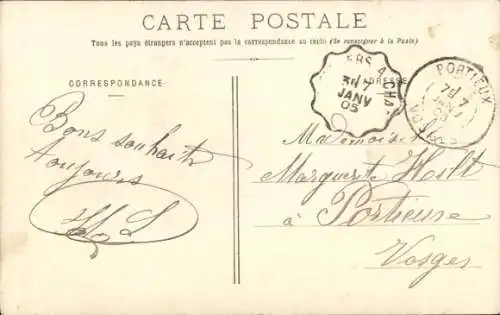 CARTE POSTALE
Tous les pays étrangers n'acceptent pas la correspondance au recto (Se renseigner à la Poste)
CORRESPONDANCE
ADRESSE
ERS A CHA
7
JANV
05
PORTIEUX
7
JANV
05
VOSGES
Bons souhaits
Toujours
Mademoiselle
Marguerite
à Portieux
Vosges